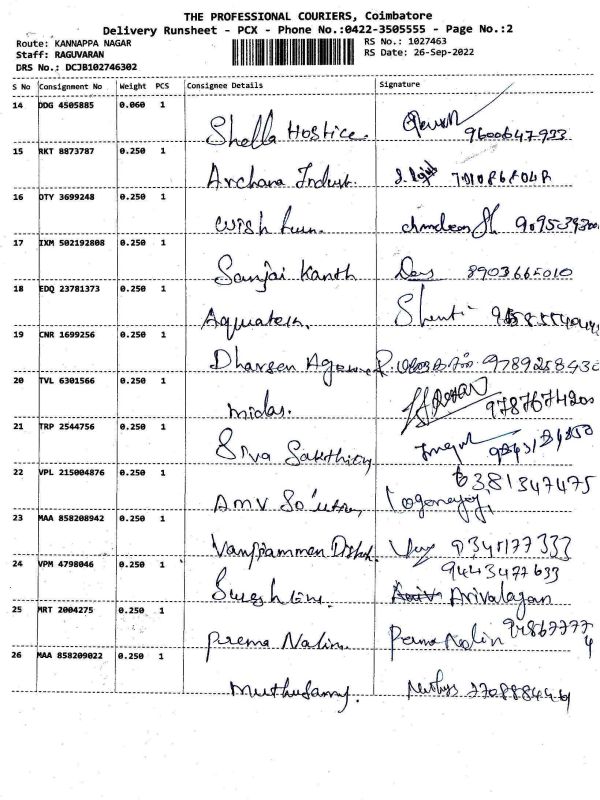 THE PROFESSIONAL COURIERS, Coimbatore
Delivery Runsheet - PCX - Phone No.:0422-3505555 - Page No.:2
Route: KANNAPPA NAGAR
Staff: RAGUVARAN
DRS No.: DCJB102746302
RS No.: 1027463
RS Date: 26-Sep-2022
S No Consignment No Weight PCS Consignee Details Signature
14 DDG 4505885 0.060 1
Shella Hostice. 9600647933
15 RKT 8873787 0.250 1
Archana Indust.
16 OTY 3699248 0.250 1
Wish
17 IXM 502192808 0.250 1
Sanjai Kanth 8903665010
18 EDQ 23781373 0.250 1
Aquatech. Shanti
19 CNR 1699256 0.250 1
Dharsen 9789258430
20 TVL 6301566 0.250 1
midas. 9787674200
21 TRP 2544756 0.250 1
Siva
22 VPL 215004876 0.250 1
AMV 6381347475
23 MAA 858208942 0.250 1
24 VPM 4798046 0.250 1
9443477633
Arivalagan
25 MRT 2004275 0.250 1
Prema Nalin. Prema Nalin
26 MAA 858209022 0.250 1
Muthusamy.